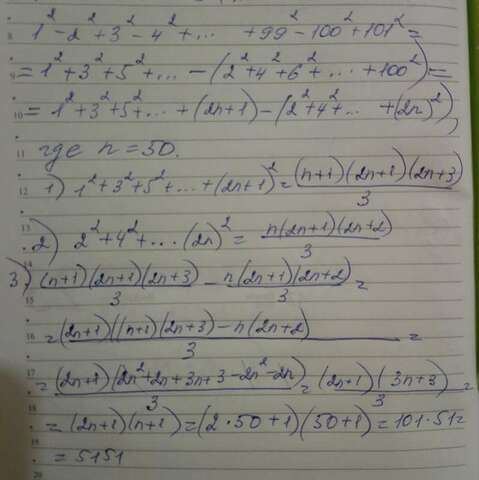 1² - 2² + 3² - 4² + ... + 99² - 100² + 101² =
= 1² + 3² + 5² + ... - (2² + 4² + 6² + ... + 100²) =
= 1² + 3² + 5² + ... + (2n+1) - (2² + 4² + ... + (2n)²),
где n = 50.
1) 1² + 3² + 5² + ... + (2n+1)² = (n+1)(2n+1)(2n+3)/3
2) 2² + 4² + ... (2n)² = n(2n+1)(2n+2)/3
3) (n+1)(2n+1)(2n+3)/3 - n(2n+1)(2n+2)/3 =
= (2n+1)((n+1)(2n+3) - n(2n+2)/3 =
= (2n+1)(2n²+2n+3n+3-2n²-2n)/3 = (2n+1)(3n+3)/3 =
= (2n+1)(n+1) = (2·50+1)(50+1) = 101·51 =
= 5151